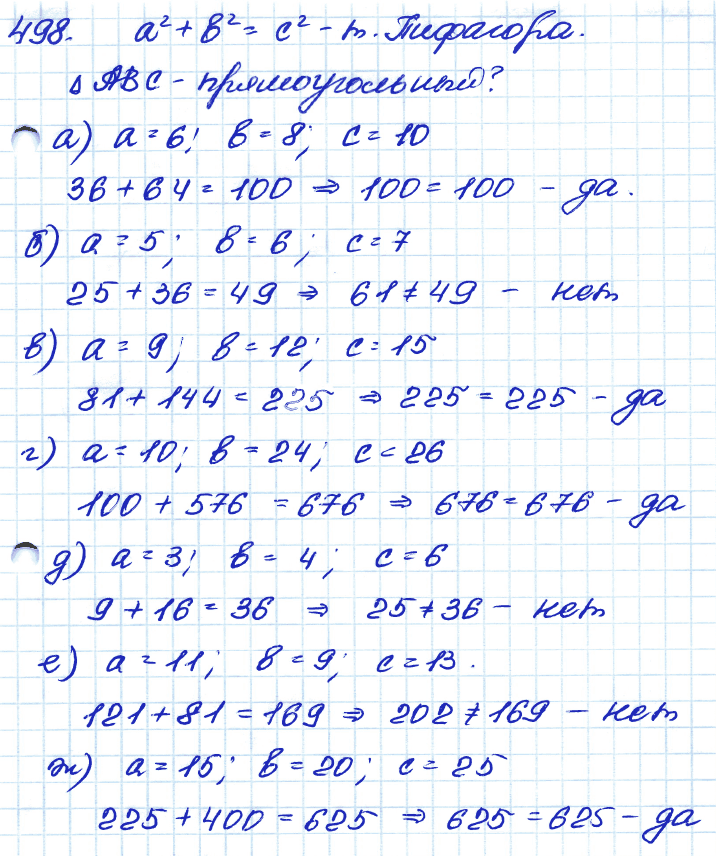 498. a² + в² = c² - т. Пифагора.
Δ ABC - прямоугольный?
а) a = 6; в = 8; c = 10
36 + 64 = 100 ⇒ 100 = 100 - да.
б) a = 5; в = 6; c = 7
25 + 36 = 49 ⇒ 61 ≠ 49 - нет
в) a = 9; в = 12; c = 15
81 + 144 = 225 ⇒ 225 = 225 - да
г) a = 10; в = 24; c = 26
100 + 576 = 676 ⇒ 676 = 676 - да
д) a = 3; в = 4; c = 6
9 + 16 = 36 ⇒ 25 ≠ 36 - нет
е) a = 11; в = 9; c = 13.
121 + 81 = 169 ⇒ 202 ≠ 169 - нет
ж) a = 15; в = 20; c = 25
225 + 400 = 625 ⇒ 625 = 625 - да